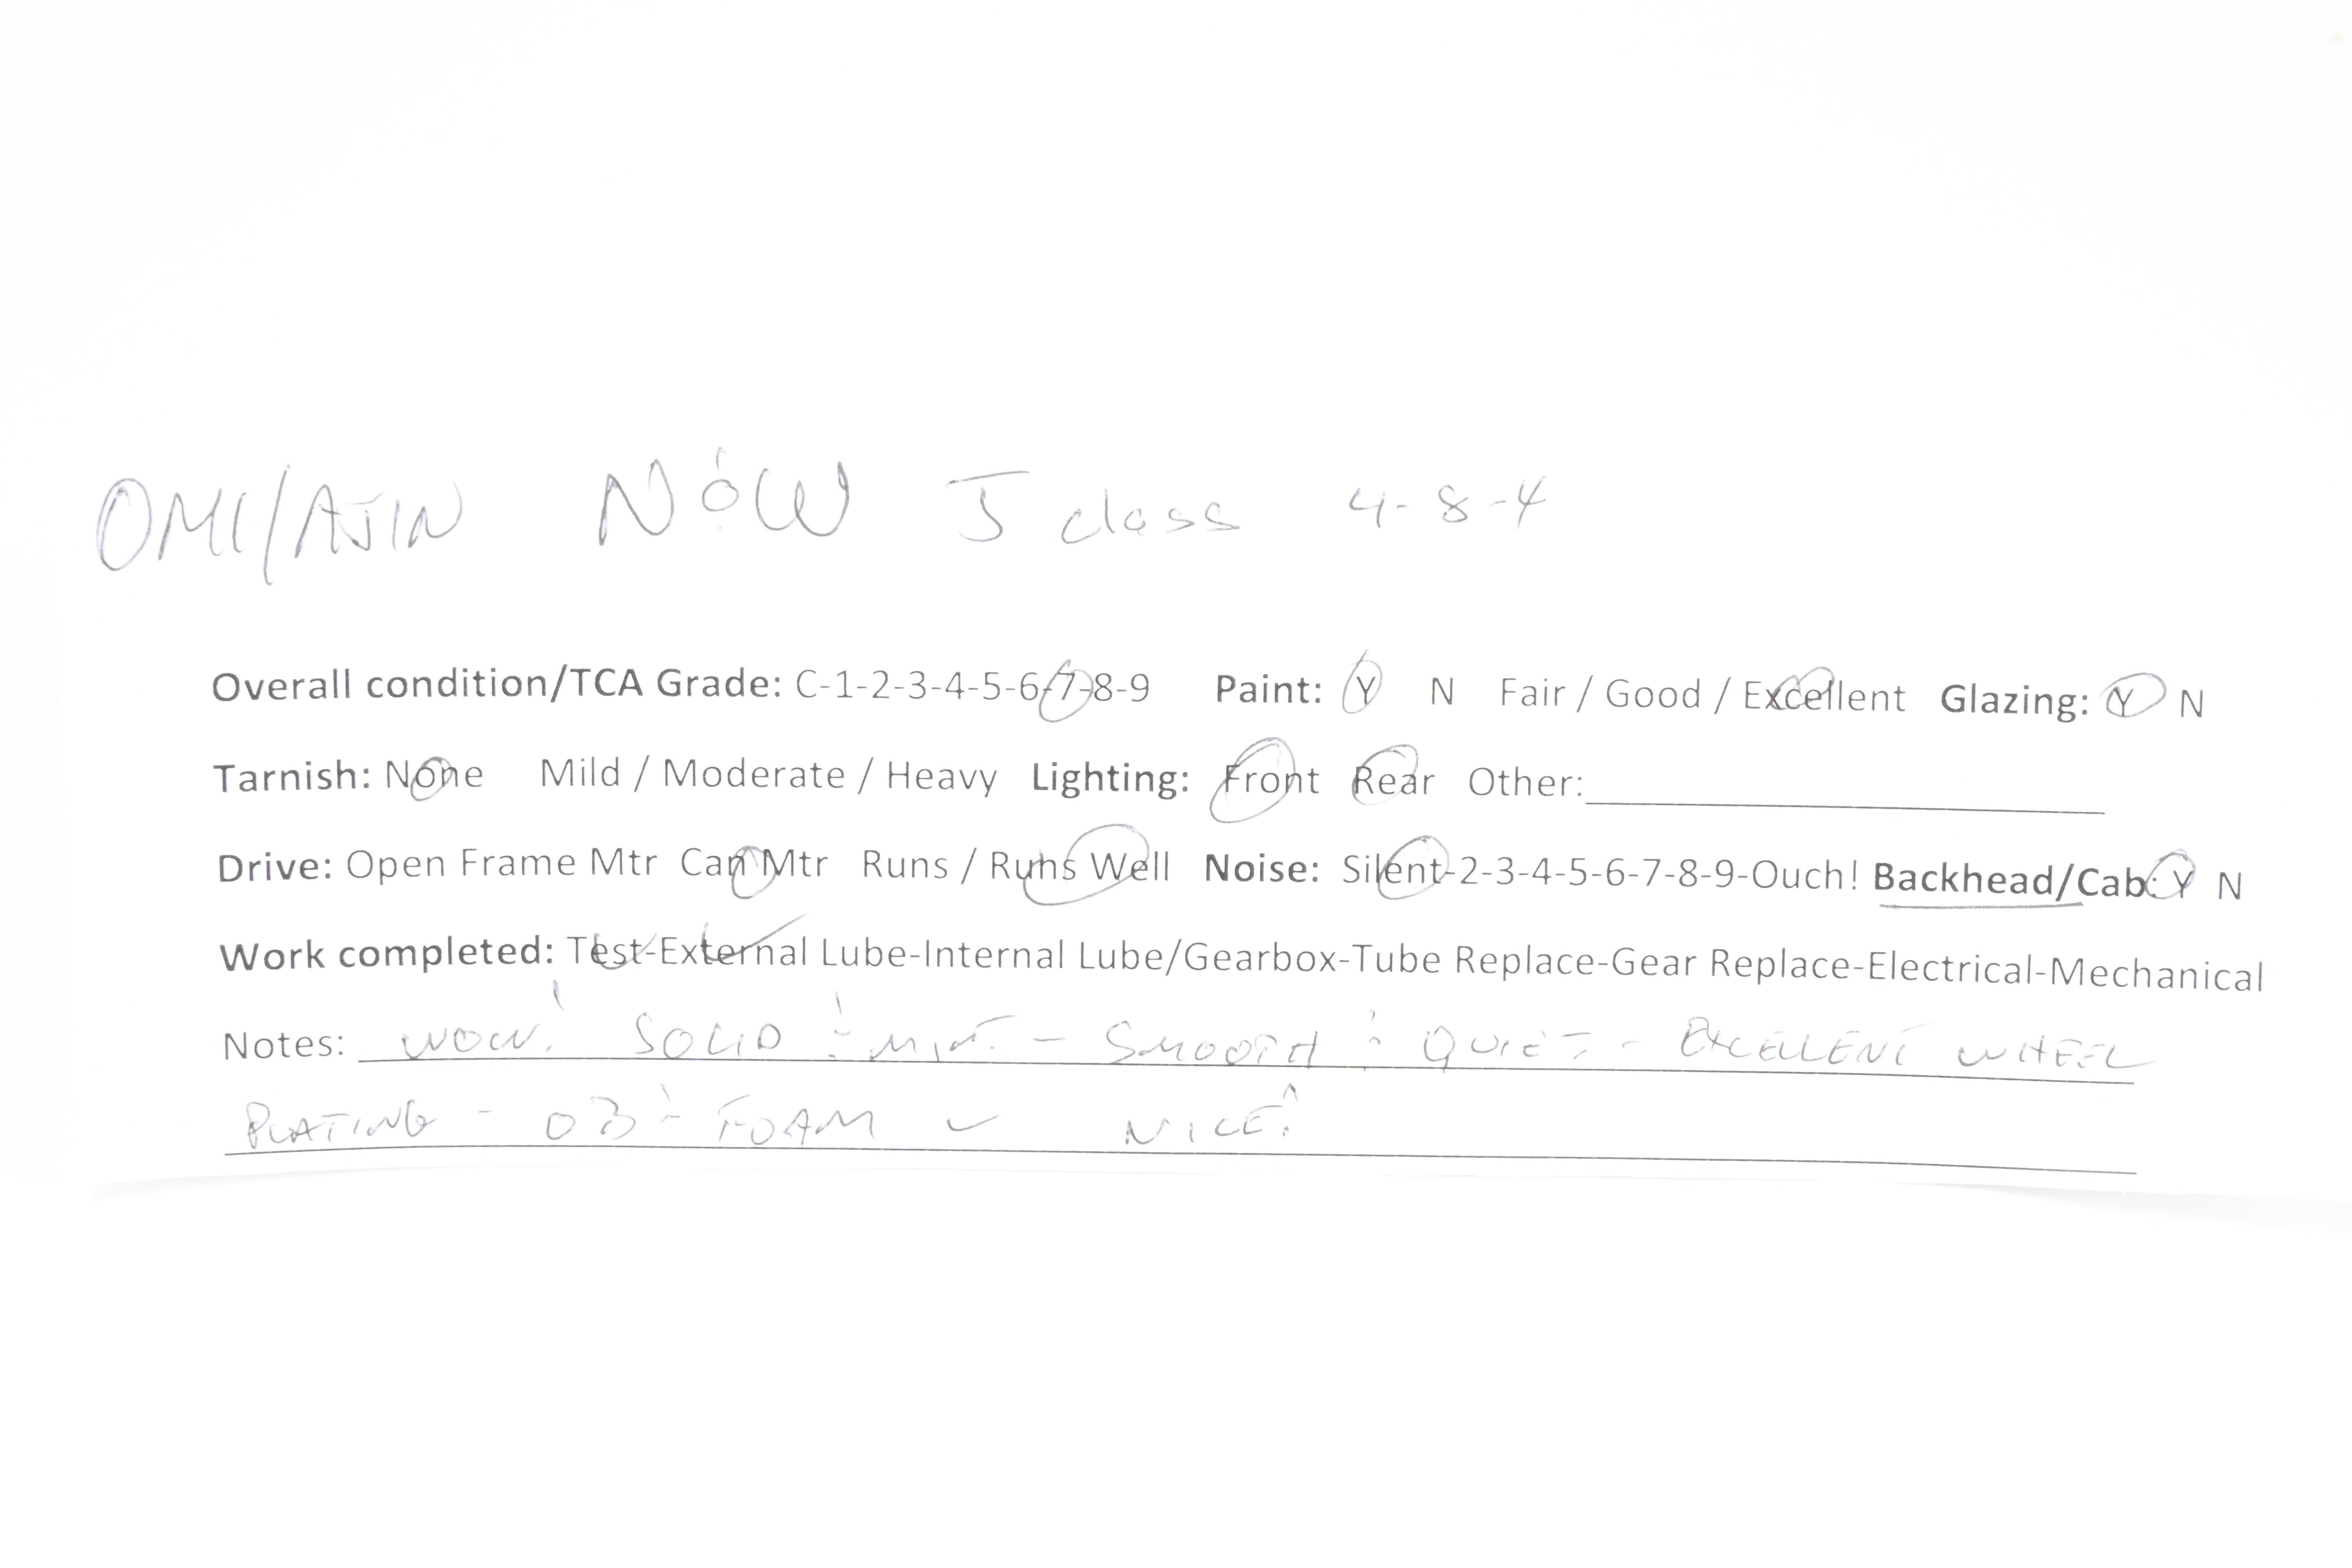 OMI/AJIN N&W J class 4-8-4
Overall condition/TCA Grade: C-1-2-3-4-5-6-7-8-9 Paint: Y N Fair / Good / Excellent Glazing: Y N
Tarnish: None Mild / Moderate / Heavy Lighting: Front Rear Other:
Drive: Open Frame Mtr Can Mtr Runs / Runs Well Noise: Silent-2-3-4-5-6-7-8-9-Ouch! Backhead/Cab: Y N
Work completed: Test-External Lube-Internal Lube/Gearbox-Tube Replace-Gear Replace-Electrical-Mechanical
Notes: WOW! SOLID - SMOOTH & QUIET - EXCELLENT WHEEL
PLATING - OB & FOAM ✓ NICE!